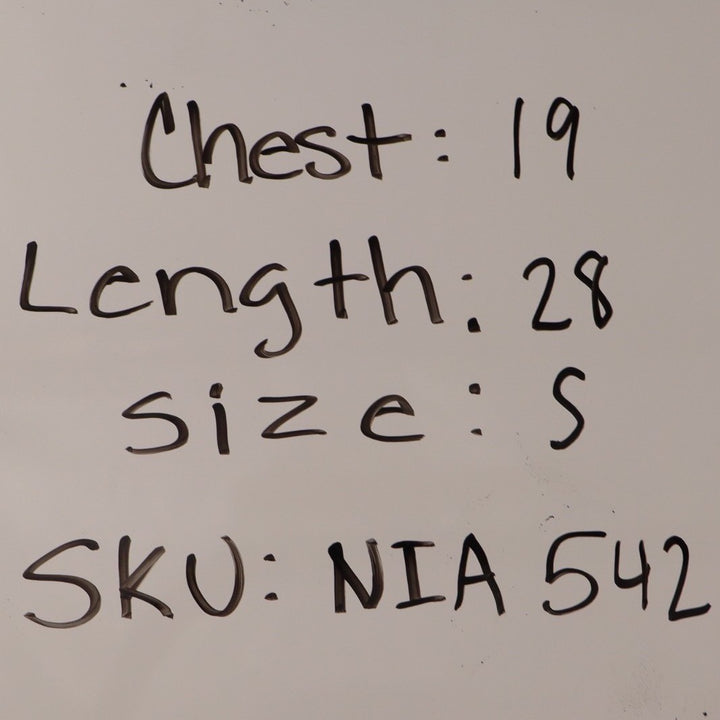 Chest: 19
Length: 28
Size: S
SKU: NIA 542